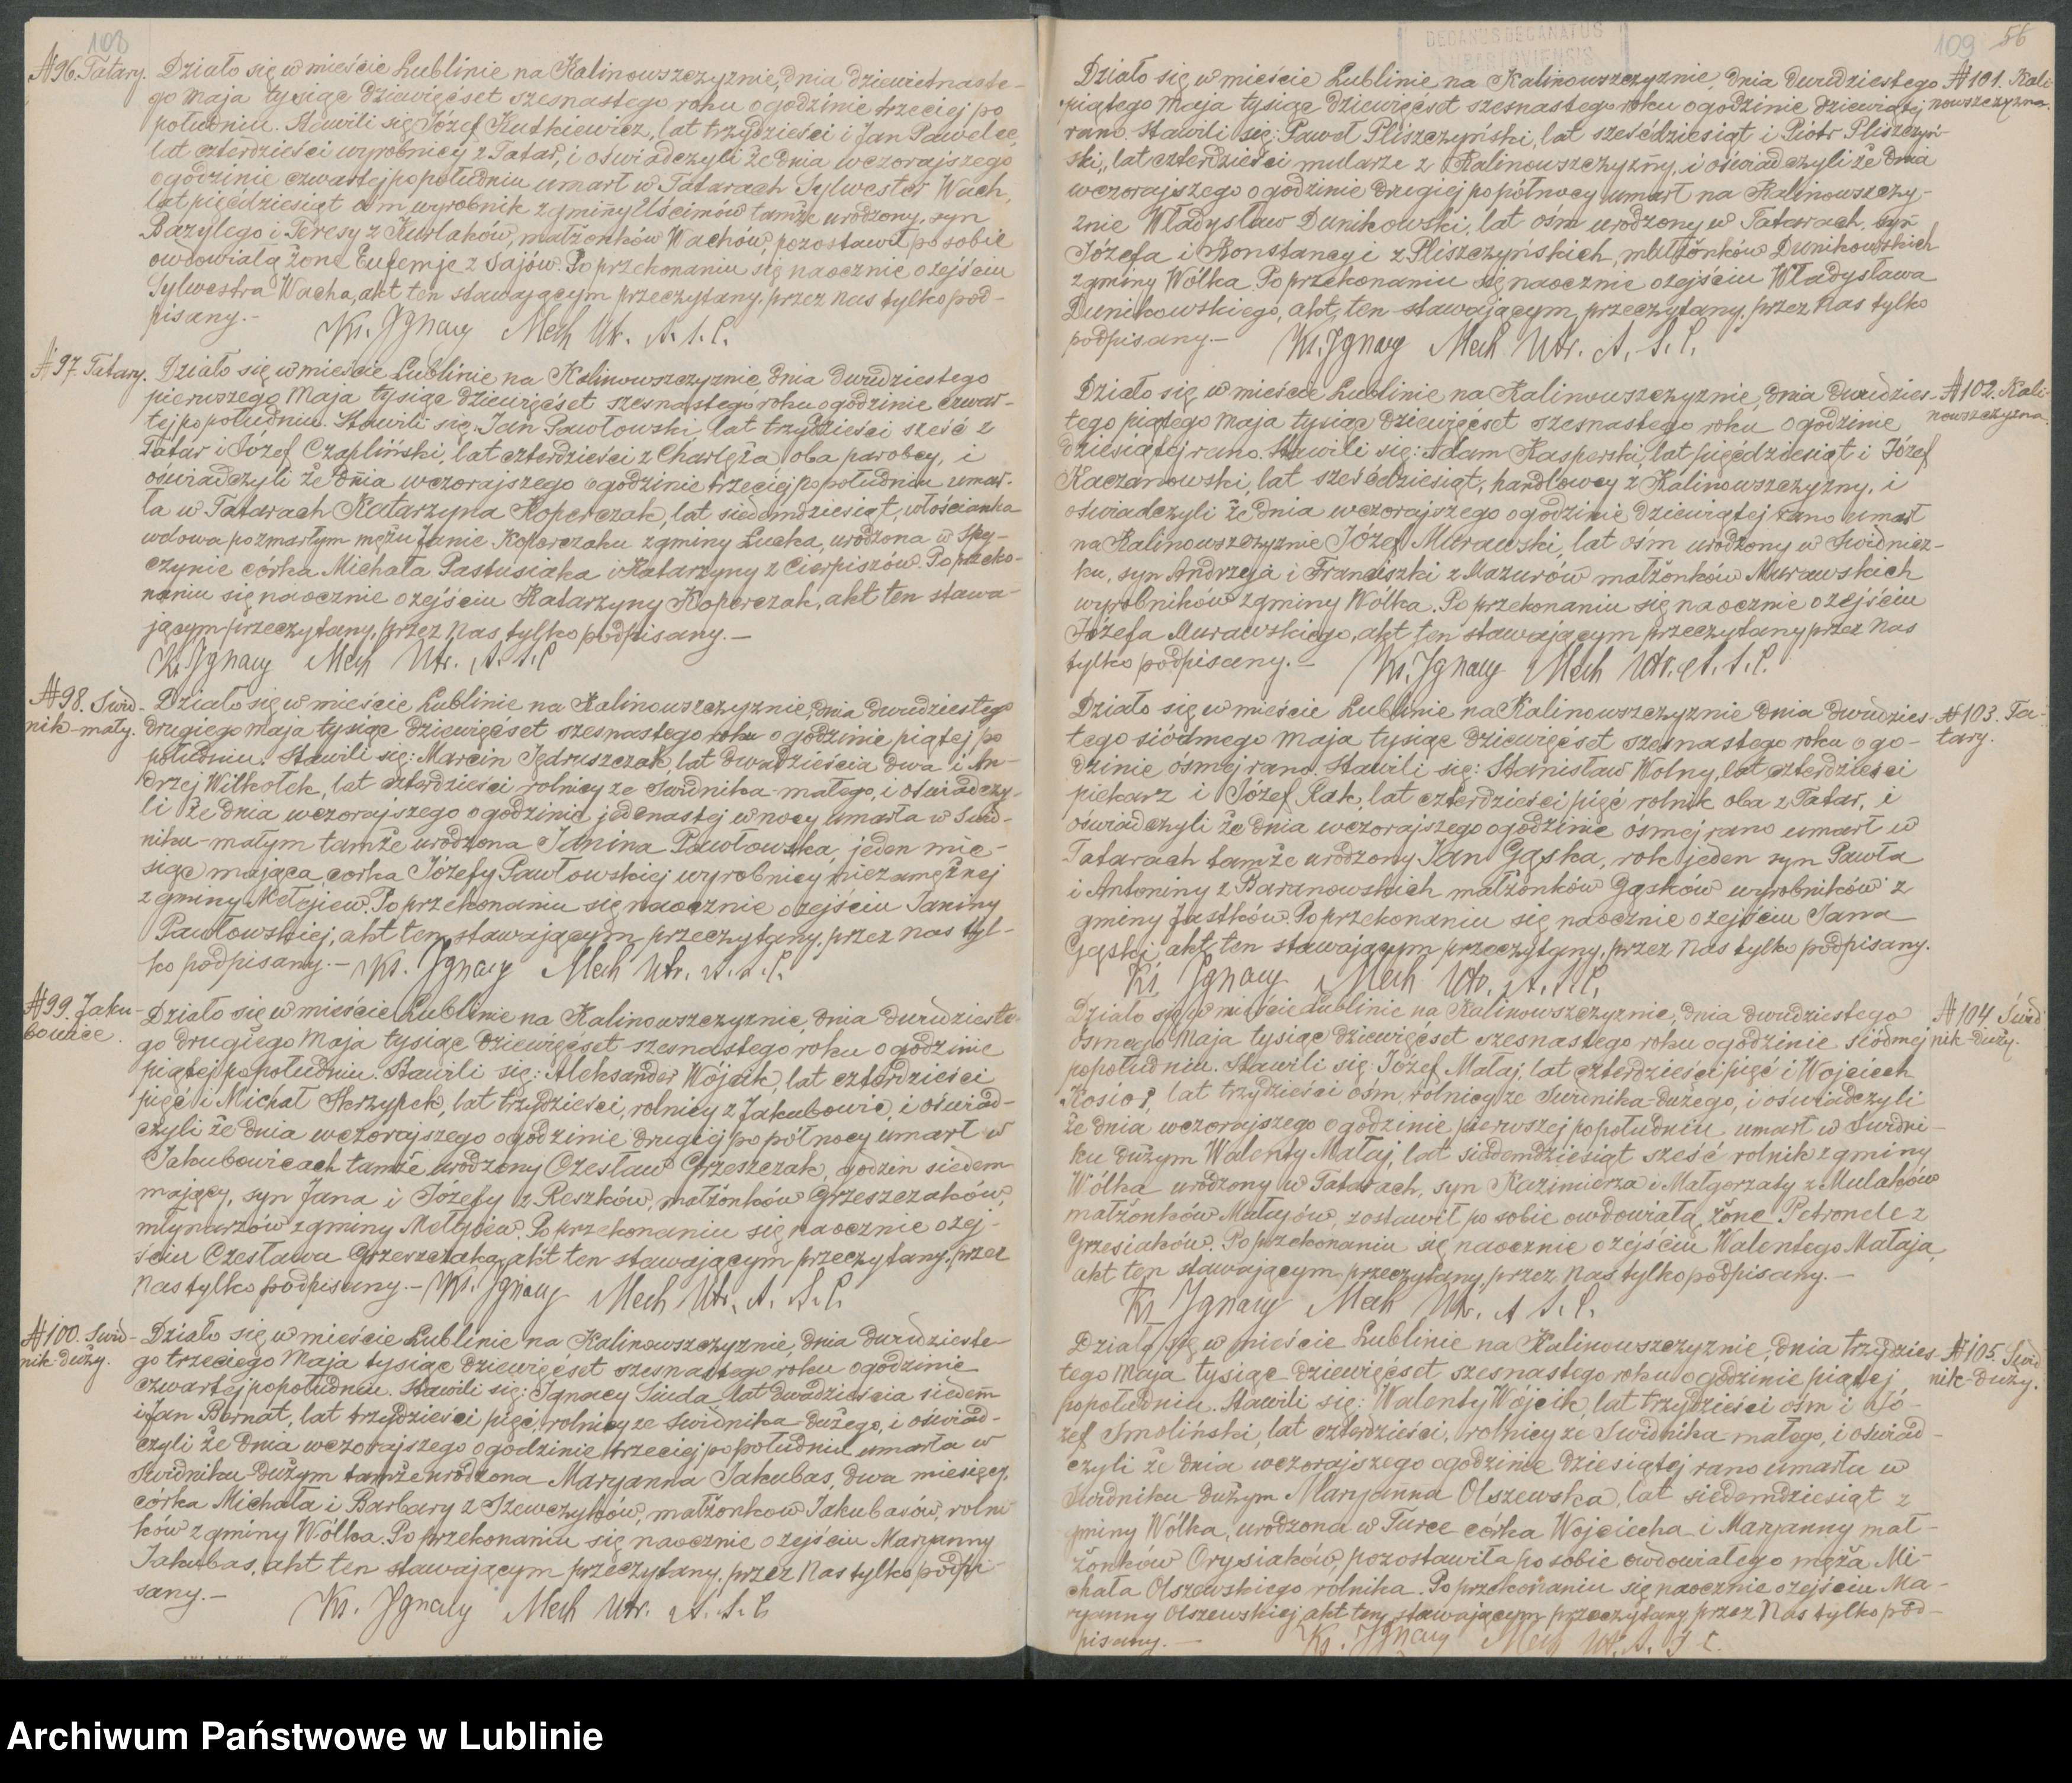 108
№ 96. Tatary.
Działo się w mieście Lublinie na Kalinowszczyznie, dnia dziewiętnaste-
go Maja tysiąc dziewięćset szesnastego roku o godzinie trzeciej po
południu. Stawili się Józef Kutkiewicz, lat trzydzieści i Jan Pawelec,
lat czterdzieści wyrobnicy z Tatar, i oświadczyli że dnia wczorajszego
o godzinie czwartej po południu umarł w Tatarach Sylwester Wach,
lat pięćdziesiąt ośm wyrobnik z gminy Uścimów tamże urodzony, syn
Bazylego i Teresy z Kurlaków, małżonków Wachów, pozostawił po sobie
owdowiałą żonę Eufemję z Sajów. Po przekonaniu się naocznie o zejściu
Sylwestra Wacha, akt ten stawającym przeczytany, przez nas tylko pod-
pisany.-
Ks. Ignacy Mech Utr. A. S. C.
№ 97. Tatary.
Działo się w mieście Lublinie na Kalinowszczyznie, dnia dwudziestego
pierwszego Maja tysiąc dziewięćset szesnastego roku o godzinie czwar-
tej po południu. Stawili się: Jan Pawłowski lat trzydzieści sześć z
Tatar i Józef Czapliński, lat czterdzieści z Charlęża oba parobcy, i
oświadczyli że dnia wczorajszego o godzinie trzeciej po południu umar-
ła w Tatarach Katarzyna Koperczak, lat siedemdziesiąt, włościanka
wdowa po zmarłym mężu Janie Koperczaku z gminy Łucka, urodzona w Spy-
czynie córka Michała Pastusiaka i Katarzyny z Cierpiszów. Po przeko-
naniu się naocznie o zejściu Katarzyny Koperczak, akt ten stawa-
jącym przeczytany, przez nas tylko podpisany.-
Ks. Ignacy Mech Utr. A. S. C
№ 98. Świd-
nik-mały.
Działo się w mieście Lublinie na Kalinowszczyznie, dnia dwudziestego
drugiego Maja tysiąc dziewięćset szesnastego roku o godzinie piątej po
południu. Stawili się: Marcin Jędruszczak, lat dwadzieścia dwa i An-
drzej Wilkołek, lat czterdzieści rolnicy ze Świdnika-małego, i oświadczy-
li że dnia wczorajszego o godzinie jedenastej w nocy umarła w Świd-
niku-małym tamże urodzona Janina Pawłowska, jeden mie-
siąc mająca córka Józefy Pawłowskiej wyrobnicy niezamężnej
z gminy Mełgiew. Po przekonaniu się naocznie o zejściu Janiny
Pawłowskiej, akt ten stawającym przeczytany, przez nas tyl-
ko podpisany.- Ks. Ignacy Mech Utr. A. S. C.
№ 99. Jaku-
bowice.
Działo się w mieście Lublinie na Kalinowszczyznie, dnia dwudzieste-
go drugiego Maja tysiąc dziewięćset szesnastego roku o godzinie
piątej po południu. Stawili się: Aleksander Wójcik, lat czterdzieści
pięć i Michał Skrzypek, lat trzydzieści, rolnicy z Jakubowic, i oświad-
czyli że dnia wczorajszego o godzinie drugiej po północy umarł w
Jakubowicach tamże urodzony Czesław Grzeszczak, godzin siedem
mający, syn Jana i Józefy z Reszków, małżonków Grzeszczaków,
młynarzów z gminy Mełgiew. Po przekonaniu się naocznie o zej-
ściu Czesława Grzeszczaka, akt ten stawającym przeczytany, przez
nas tylko podpisany.- Ks. Ignacy Mech Utr. A. S. C.
№ 100. Świd-
nik-duży.
Działo się w mieście Lublinie na Kalinowszczyznie, dnia dwudzieste-
go trzeciego Maja tysiąc dziewięćset szesnastego roku o godzinie
czwartej po południu. Stawili się: Ignacy Siuda, lat dwadzieścia siedem
i Jan Bernat, lat trzydzieści pięć, rolnicy ze Świdnika-dużego, i oświad-
czyli że dnia wczorajszego o godzinie trzeciej po południu umarła w
Świdniku-dużym tamże urodzona Maryanna Jakubas, dwa miesięcy,
córka Michała i Barbary z Szewczyków, małżonków Jakubasów, rolni-
ków z gminy Wólka. Po przekonaniu się naocznie o zejściu Maryanny
Jakubas, akt ten stawającym przeczytany, przez nas tylko podpi-
sany.-
Ks. Ignacy Mech Utr. A. S. C
DECANUS DECANATUS
109 56
Działo się w mieście Lublinie na Kalinowszczyznie, dnia dwudziestego
piątego Maja tysiąc dziewięćset szesnastego roku o godzinie dziewiątej
rano. Stawili się: Paweł Pliszczyński, lat sześćdziesiąt i Piotr Pliszczyń-
ski, lat czterdzieści mularze z Kalinowszczyzny, i oświadczyli że dnia
wczorajszego o godzinie drugiej po północy umarł na Kalinowszczy-
znie Władysław Dunikowski, lat ośm urodzony w Tatarach, syn
Józefa i Konstancyi z Pliszczyńskich, małżonków Dunikowskich
z gminy Wólka. Po przekonaniu się naocznie o zejściu Władysława
Dunikowskiego, akt ten stawającym, przeczytany, przez nas tylko
podpisany.- Ks. Ignacy Mech Utr. A. S. C.
№ 101. Kali-
nowszczyzna.
Działo się w mieście Lublinie na Kalinowszczyznie, dnia dwudzies-
tego piątego Maja tysiąc dziewięćset szesnastego roku o godzinie
dziesiątej rano. Stawili się: Adam Kasperski, lat pięćdziesiąt i Józef
Kaczanowski, lat sześćdziesiąt, handlowcy z Kalinowszczyzny, i
oświadczyli że dnia wczorajszego o godzinie dziewiątej rano umarł
na Kalinowszczyznie Józef Murawski, lat ośm urodzony w Świdnicz-
ku, syn Andrzeja i Franciszki z Mazurów małżonków Murawskich
wyrobników z gminy Wólka. Po przekonaniu się naocznie o zejściu
Józefa Murawskiego, akt ten stawającym przeczytany przez nas
tylko podpisany.- Ks. Ignacy Mech Utr. A. S. C.
№ 102. Kali-
nowszczyzna.
Działo się w mieście Lublinie na Kalinowszczyznie dnia dwudzies-
tego siódmego Maja tysiąc dziewięćset szesnastego roku o go-
dzinie ósmej rano. Stawili się: Stanisław Wolny, lat czterdzieści
piekarz i Józef Rak, lat czterdzieści pięć rolnik oba z Tatar, i
oświadczyli że dnia wczorajszego o godzinie ósmej rano umarł w
Tatarach tamże urodzony Jan Gąska, rok jeden syn Pawła
i Antoniny z Baranowskich małżonków Gąsków wyrobników z
gminy Jastków. Po przekonaniu się naocznie o zejściu Jana
Gąski, akt ten stawającym przeczytany, przez nas tylko podpisany.
Ks. Ignacy Mech Utr. A. S. C.
№ 103. Ta-
tary.
Działo się w mieście Lublinie na Kalinowszczyznie, dnia dwudziestego
ósmego Maja tysiąc dziewięćset szesnastego roku o godzinie siódmej
po południu. Stawili się: Józef Mataj, lat czterdzieści pięć i Wojciech
Kosior, lat trzydzieści ośm, rolnicy ze Świdnika-dużego, i oświadczyli
że dnia wczorajszego o godzinie pierwszej po południu umarł w Świdni-
ku dużym Walenty Mataj, lat siedemdziesiąt sześć rolnik z gminy
Wólka urodzony w Tatarach, syn Kazimierza i Małgorzaty z Mulaków
małżonków Matajów, zostawił po sobie owdowiałą żonę Petronelę z
Grzesiaków. Po przekonaniu się naocznie o zejściu Walentego Mataja,
akt ten stawającym przeczytany, przez nas tylko podpisany.-
Ks. Ignacy Mech Utr. A S. C.
№ 104 Świd-
nik-duży.
Działo się w mieście Lublinie na Kalinowszczyznie, dnia trzydzies-
tego Maja tysiąc dziewięćset szesnastego roku o godzinie piątej
po południu. Stawili się: Walenty Wójcik, lat trzydzieści ośm i Jó-
zef Smoliński, lat czterdzieści, rolnicy ze Świdnika-małego, i oświad-
czyli że dnia wczorajszego o godzinie dziesiątej rano umarła w
Świdniku-Dużym Maryanna Olszewska, lat siedemdziesiąt z
gminy Wólka, urodzona w Turce córka Wojciecha i Maryanny mał-
żonków Orysiaków, pozostawiła po sobie owdowiałego męża Mi-
chała Olszewskiego rolnika. Po przekonaniu się naocznie o zejściu Ma-
ryanny Olszewskiej akt ten stawającym przeczytany przez Nas tylko pod-
pisany.- Ks. Ignacy Mech Utr. A. S C.
№ 105. Świd-
nik-Duży.
Archiwum Państwowe w Lublinie